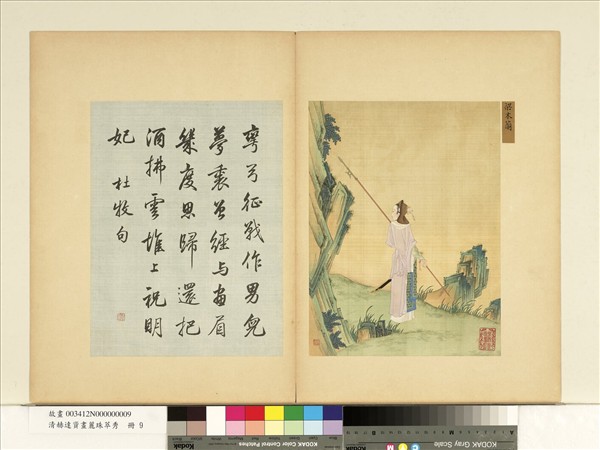 梁木蘭
彎弓征戰作男兒
夢裏曾經與畫眉
幾度思歸還把
酒拂雲堆上祝明
妃 杜牧句
故畫 003412N000000009
清赫達資畫麗珠萃秀 冊 9
KODAK Color Control Patches
KODAK Gray Scale